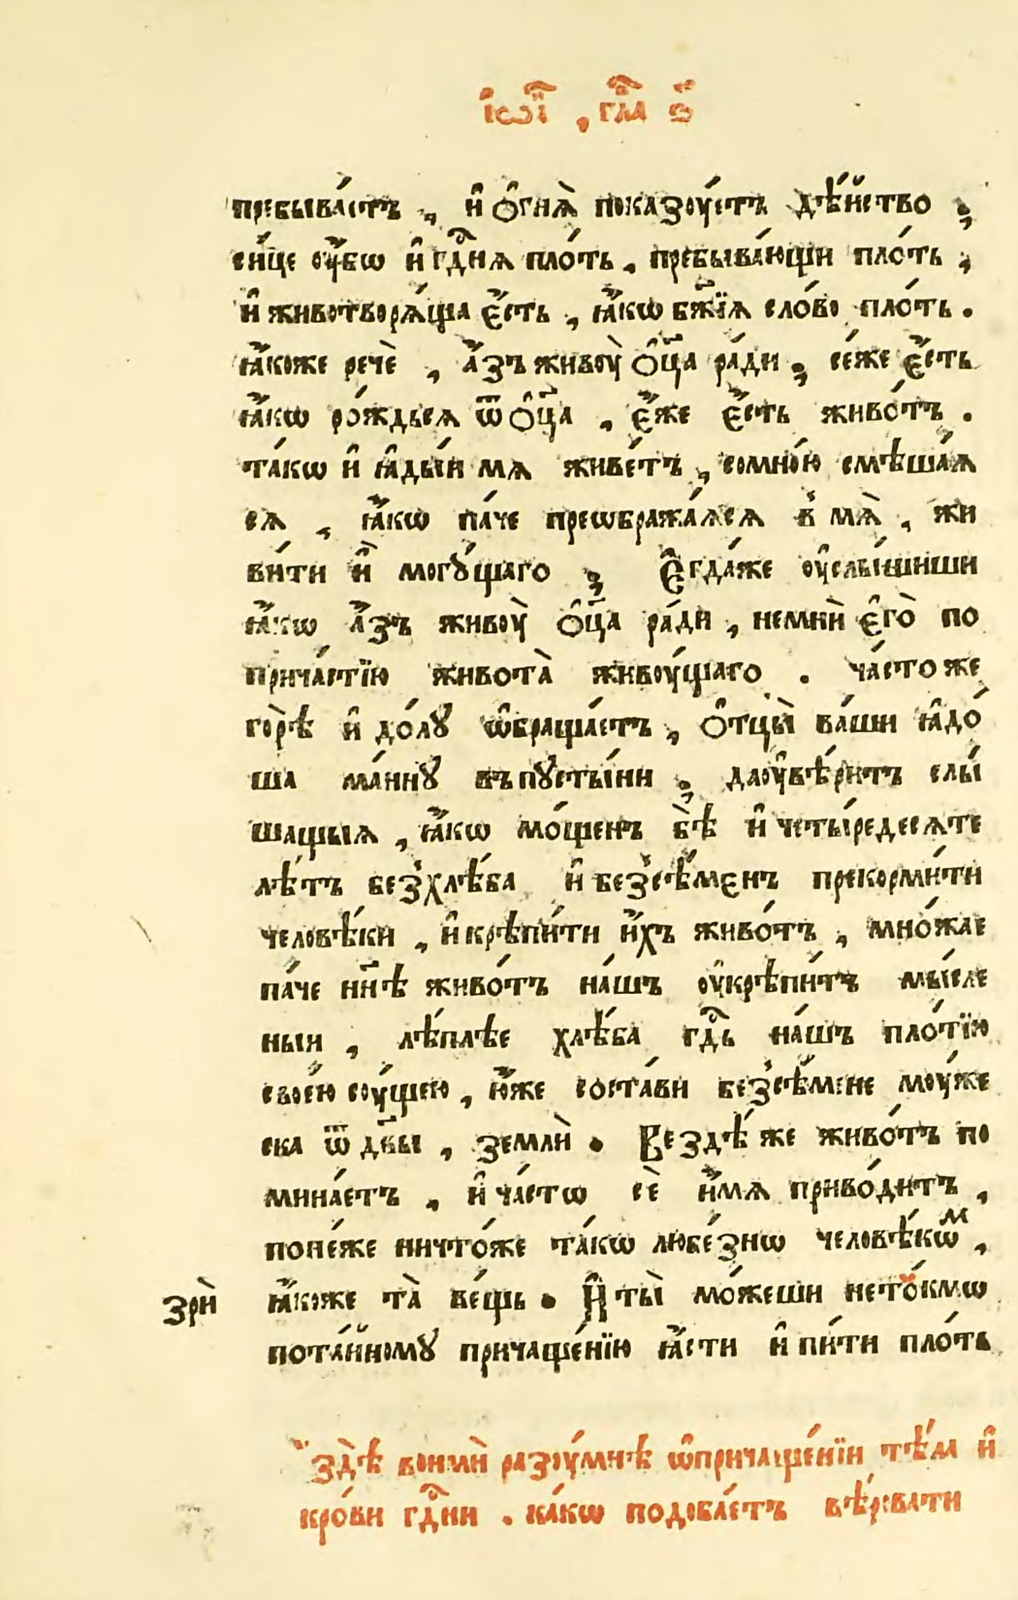 іѡ҃і , гла̀ ѕ҃
пребыва́етъ , и҆ ѻ҆гня̀ показꙋ́етъ дѣ́йство ;
си́це ᲂу҆́бѡ и҆ гд҇ня плѡ́ть , пребыва́ющи пло́ть ;
и҆ животворѧ́ща є҆́сть , ꙗ҆́кѡ бж҃їѧ сло́во пло́ть .
ꙗ҆́коже речѐ , а҆́зъ живᲂу̀ ѻ҆ц҃а ра́ди ; се́же є҆́сть
ꙗ҆́кѡ ро́ждьсѧ ѿ ѻ҆ц҃а , є҆́же є҆́сть живо́тъ .
та́кѡ и҆ ꙗ҆ды́и мѧ живе́тъ , сомно́ю смѣша́ѧ
сѧ , ꙗ҆́кѡ па́че преѡбража́ѧсѧ в̾ мѧ̀ , жи
ви́ти и҆̀ могꙋ́щаго ; Є҆гда́же ᲂу҆слы́шиши
ꙗ҆́кѡ а҆́зъ живᲂу̀ ѻ҆ц҃а ра́ди , немнѝ є҆го̀ по
прича́стїю живота̀ живᲂу́щаго . ча́стоже
го́рѣ и҆ до́лꙋ ѡ҆браща́етъ , ѻ҆тцы̀ ва́ши ꙗ҆до́
ша ма́ннꙋ въпꙋсты́ни ; даᲂу҆вѣ́ритъ слы́
шащыѧ , ꙗ҆́кѡ мо́щенъ бѣ̀ и҆ четы́редесѧте
лѣ́тъ без̾хлѣ́ба и҆ без̾сѣ́менъ прекорми́ти
человѣ́ки , и҆ крѣпи́ти и҆́хъ живо́тъ , мно́жае
па́че нн҃ѣ живо́тъ на́шъ ᲂу҆крѣпи́тъ мы́сле
ныи , лѣ́плѣе хлѣ́ба гд҇ь на́шъ пло́тїю
своє́ю сᲂу́щею , ю҆́же соста́ви без̾сѣ́мене мᲂу́же
ска ѿ дв҃ы , землѝ . Вездѣ́ же живо́тъ по
мина́етъ , и҆ ча́стѡ сѐ и҆́мѧ приво́дитъ ,
поне́же ничто́же та́кѡ любе́знѡ человѣ́кѡм ,
зрѝ ꙗ҆́коже та̀ ве́щь . И҆ ты̀ мо́жеши нето́кмѡ
пота́йномꙋ причаще́нїю ꙗ҆́сти и҆ пи́ти пло́ть
здѣ̀ вонмѝ разᲂу́мнѣ ѡ҆причаще́нїи тѣ́ла и҆
кро́ви гд҇ни . ка́кѡ подоба́етъ вѣ́ровати